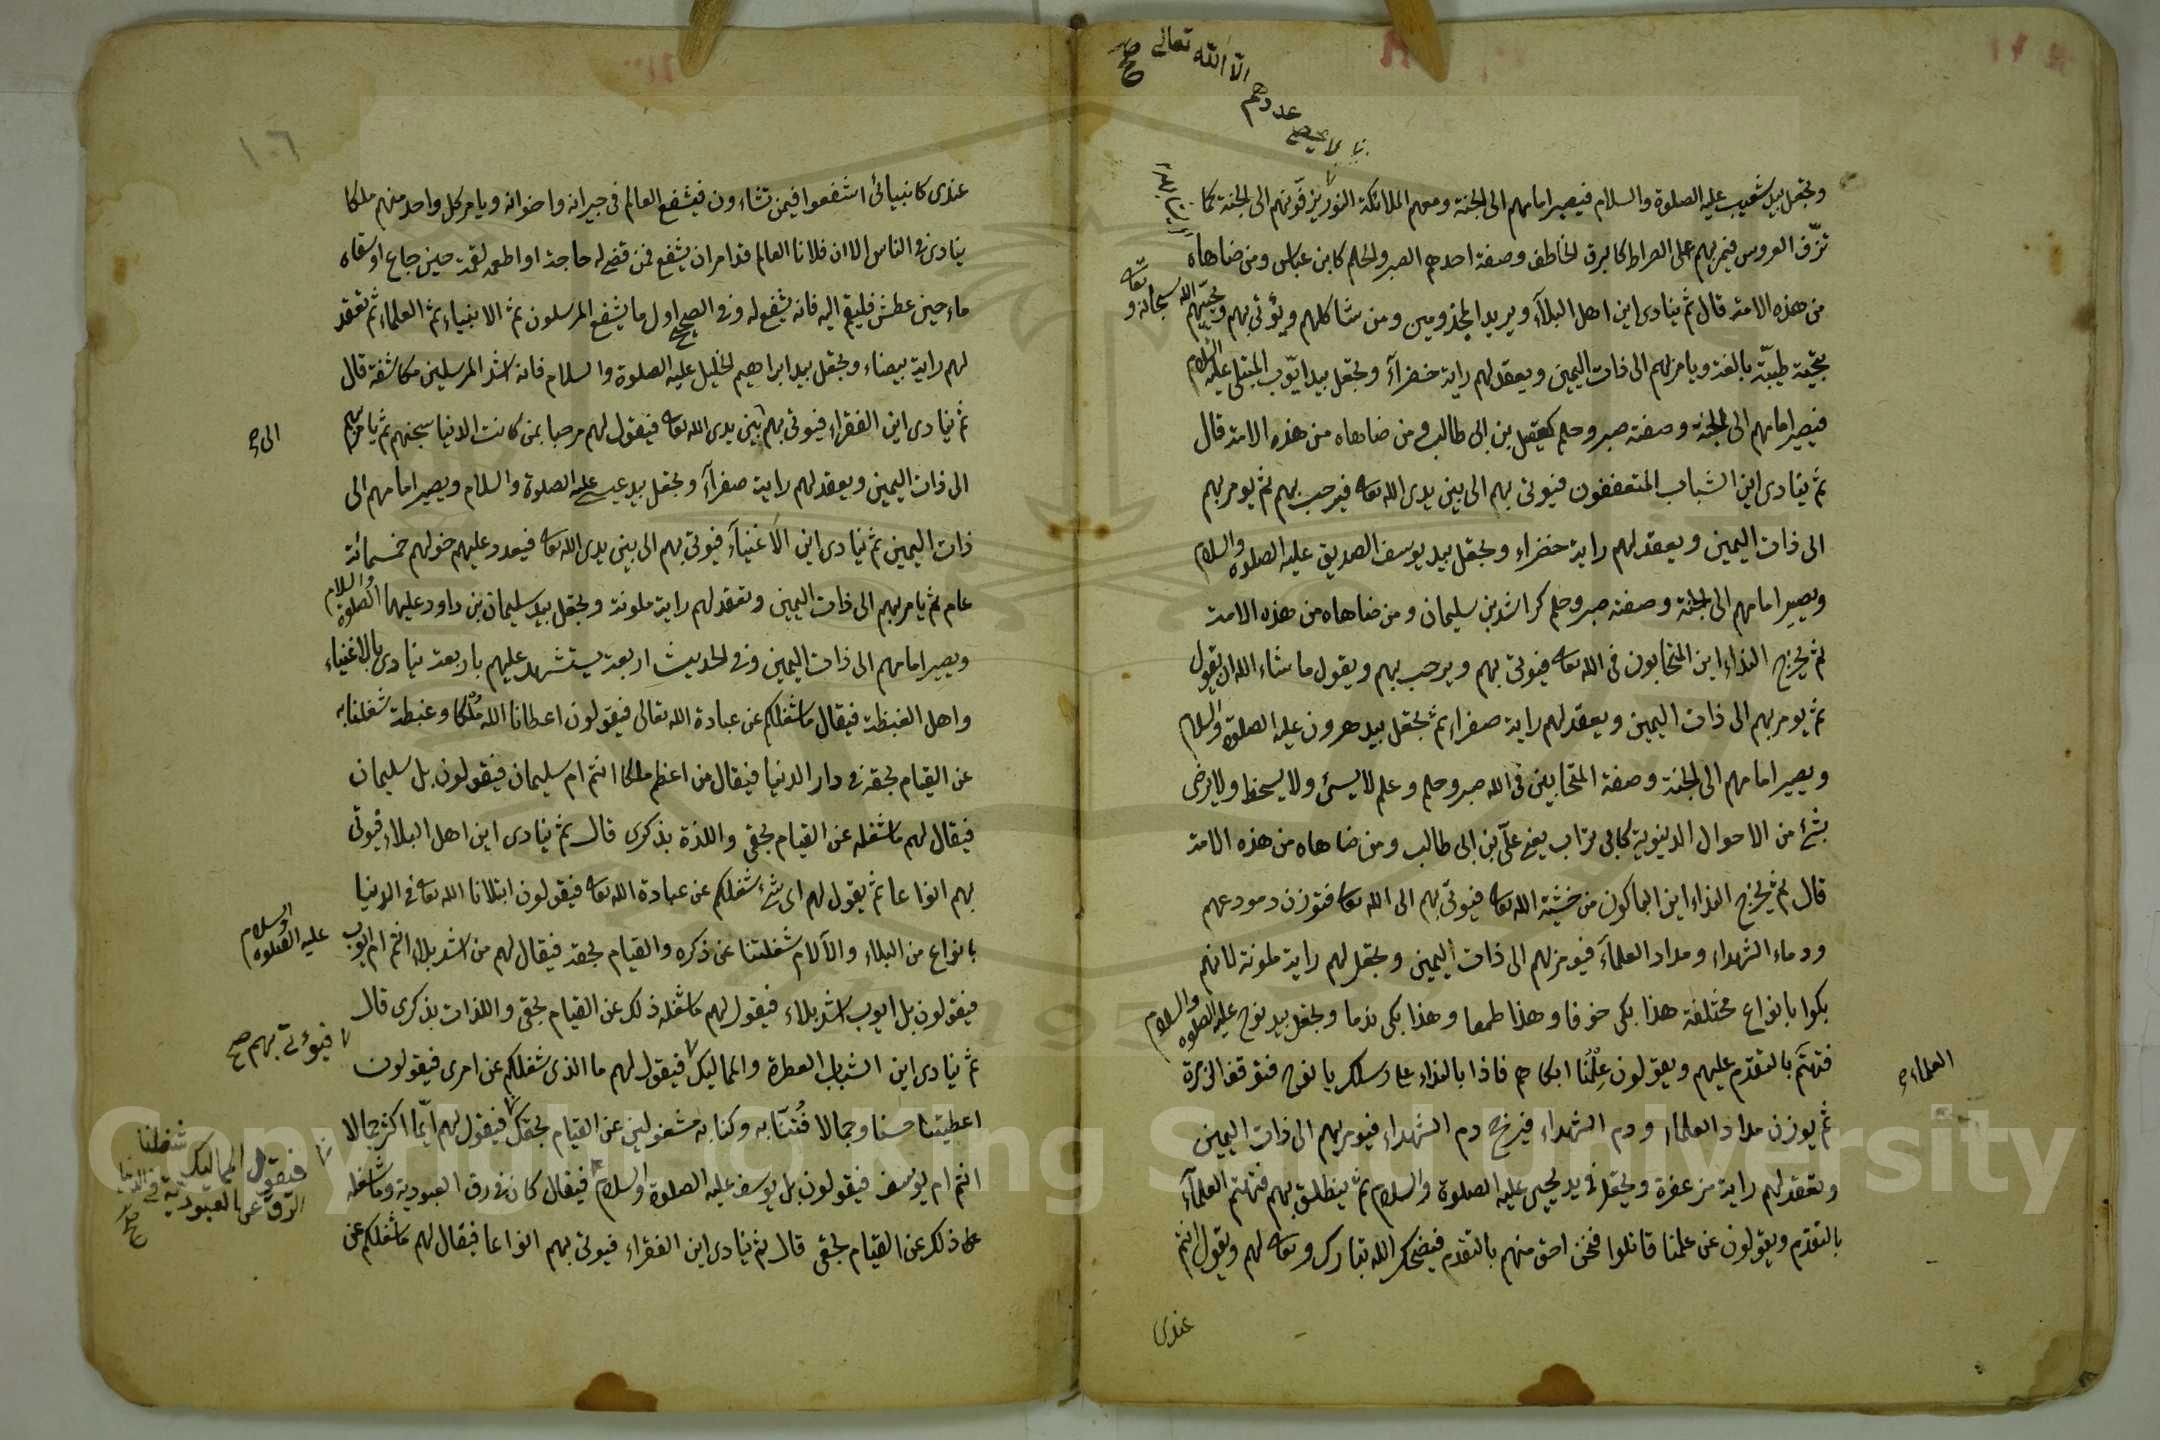 وتجعل بيد شعيب عليه الصلوة والسلام فيصير امامهم الى الجنة ومعهم الملائكة النور يزفونهم الى الجنة كما
تزف العروس فيمر بهم على الصراط كالبرق الخاطف وصفة احدهم الصبر والحلم كابن عباس ومن ضاهاه
من هذه الامة قال ثم ينادى اين اهل البلاء ويريد المجذومين ومن شاكلهم ويؤتى بهم ويحييهم الله سبحانه وتعه
بتحية طيبة بالغة ويامر بهم الى ذات اليمين ويعقد لهم راية خضرآء وتجعل بيد ايوب المبتلى عليه السلام
فيصير امامهم الى الجنة وصفته صبر وحلم كعقيل بن ابى طالب ومن ضاهاه من هذه الامة قال
ثم ينادى اين الشباب المتعففون فيوتى بهم الى بين يدى الله تعه فيرحب بهم ثم يومر بهم
الى ذات اليمين ويعقد لهم راية خضراء وتجعل بيد يوسف الصديق عليه الصلوة والسلام
ويصير امامهم الى الجنة وصفته صبر وحلم كراشد بن سليمان ومن ضاهاه من هذه الامت
ثم يخرج النداء اين المتحابون فى الله تعه فيوتى بهم ويرحب بهم ويقول ما شاء الله ان يقول
ثم يومر بهم الى ذات اليمين ويعقد لهم راية صفراء ثم تجعل بيد هرون عليه الصلوة والسلام
ويصير امامهم الى الجنة وصفة المتحابين فى الله صبر وحلم وعلم لا يسئ ولا يسخط ولا يرضى
بشئ من الاحوال الدنيوية كابى تراب يعنى على بن ابى طالب ومن ضاهاه من هذه الامة
قال ثم يخرج النداء اين الباكون من خشية الله تعه فيوتى بهم الى الله تعه فتوزن دموعهم
ودماء الشهداء ومداد العلمآء فيومر بهم الى ذات اليمين وتجعل لهم راية ملونة لانهم
بكوا بانواع مختلفة هذا بكى خوفا وهذا طمعا وهذا بكى ندما وتجعل بيد نوح عليه الصلوة والسلام
فتهتم بالتقدم عليهم ويقولون علمنا ابكاهم فاذا بالنداء على رسلك يا نوح فتوقف الزمرة
ثم يوزن مداد العلماء ودم الشهداء فيرجح دم الشهداء فيومر بهم الى ذات اليمين
وتعقد لهم راية مزعفرة وتجعل فى يد يحيى عليه الصلوة والسلام ثم ينطلق بهم فتهتم العلمآء
بالتقدم ويقولون عن علمنا قاتلوا فنحن احق منهم بالتقدم فيضحك الله تبارك وتعه لهم ويقول انتم
عندى
لا يحصى عددهم الا الله تعالى صح
العلماء
عندى كانبيائى اشفعوا فيمن تشاءون فيشفع العالم فى جيرانه واخوانه ويامر كل واحد منهم ملكا
ينادى فى الناس الا ان فلانا العالم قد امر ان يشفع فمن قضى له حاجة او اطعمه لقمة حين جاع او سقاه
ماء حين عطش فليقم اليه فانه يشفع له وفى الصحيح اول ما يشفع المرسلون ثم الانبياء ثم العلماء ثم تعقد
لهم راية بيضاء وتجعل بيد ابراهيم الخليل عليه الصلوة والسلام فانه اشد المرسلين مكاشفة قال
ثم ينادى اين الفقراء فيوتى بهم بين يدى الله تعه فيقول لهم مرحبا بمن كانت الدنيا سجنهم ثم يامر بهم
الى ذات اليمين ويعقد لهم راية صفرآء وتجعل بيد عيسى عليه الصلوة والسلام ويصير امامهم الى
ذات اليمين ثم ينادى اين الاغنيآء فيوتى بهم الى بين يدى الله تعه فيعدد عليهم خولهم خمسمائة
عام ثم يامر بهم الى ذات اليمين وتعقد لهم راية ملونة وتجعل بيد سليمان بن داود عليهما الصلوة والسلام
ويصير امامهم الى ذات اليمين وفى الحديث اربعة يستشهد عليهم باربعة ينادى بالاغنياء
واهل الغبطة فيقال ما شغلكم عن عبادة الله تعالى فيقولون اعطانا الله ملكا وغبطة شغلنا به
عن القيام بحقه فى دار الدنيا فيقال من اعظم ملكا انتم ام سليمان فيقولون بل سليمان
فيقال لهم ما شغله عن القيام بحقى واللذة بذكرى قال ثم ينادى اين اهل البلاء فيوتى
بهم انواعا ثم يقول لهم اى شئ شغلكم عن عبادة الله تعه فيقولون ابتلانا الله تعه فى الدنيا
بانواع من البلاء والآلام شغلتنا عن ذكره والقيام بحقه فيقال لهم من اشد بلاء انتم ام ايوب
عليه الصلوة والسلام
فيقولون بل ايوب اشد بلاء فيقول لهم ما شغله ذلك عن القيام بحقى واللذات بذكرى قال
ثم ينادى اين الشباب العطرة والمماليك فيقول لهم ما الذى شغلكم عن امرى فيقولون
فيؤتى بهم صح
اعطيتنا حسنا وجمالا فتنا به وكنا به مشغولين عن القيام بحقك فيقول لهم ايما اكثر جمالا
انتم ام يوسف فيقولون بل يوسف عليه الصلوة والسلام فيقال كان فى رق العبودية وما شغله
فيقول المماليك شغلنا الرق عن العبودية فى الدنيا صح
على ذلك عن القيام بحقى قال ثم ينادى اين الفقراء فيوتى بهم انواعا فيقال لهم ما شغلكم عن
الى
١٠٦
Copyright © King Saud University